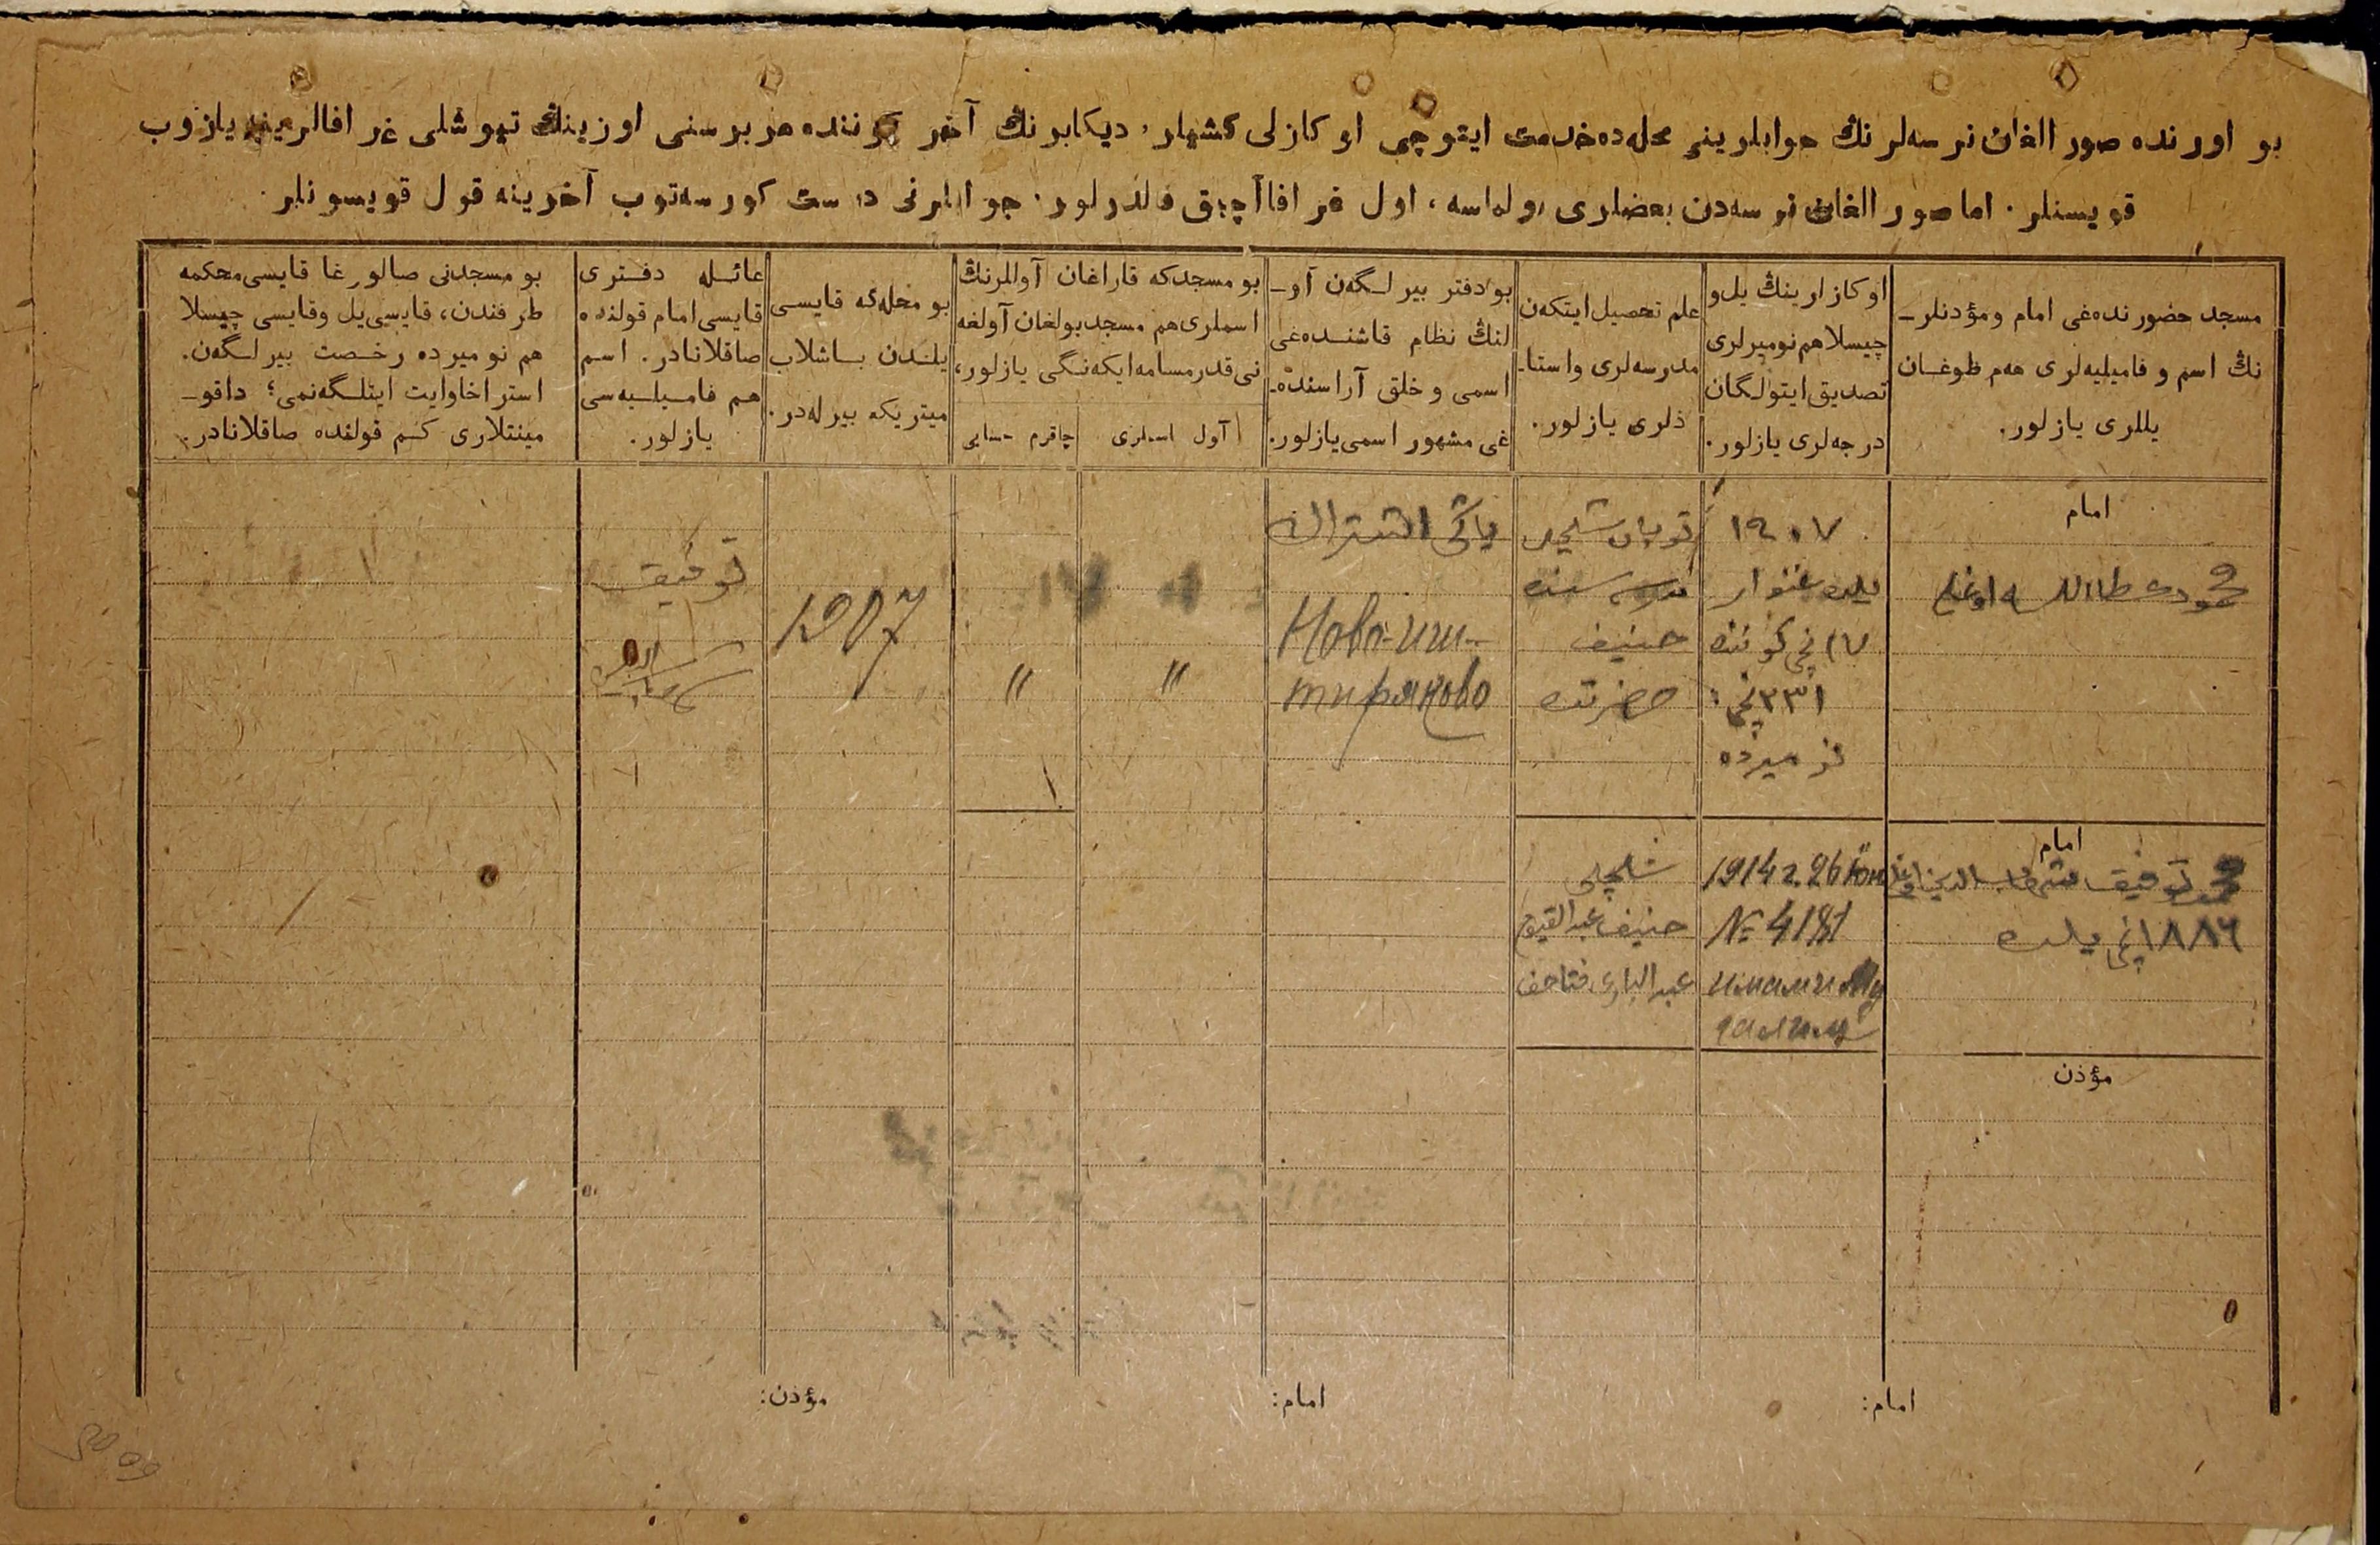 بو اورنده صورالغان نرسەلرنڭ جوابلرینی محلەده خدمت ایتوچی اوکازلی کشیلر، دیکابرنڭ آخر کوننده هر برسنی اوزینڭ تیوشلی غرافالرینه یازوب
قویسنلر. اما صورالغان نرسەدن بعضلری بولماسه، اول غرافا آچیق قالدرلور. جوابلرنی درست کورسەتوب آخرینه قول قویسونلر.
مسجد حضورندەغی امام و مؤذنلر-
نڭ اسم و فامیلیەلری هەم طوغان
یللری یازلور.
اوکازلرینڭ یل و
چیسلا هم نومیرلری
تصدیق ایتولگان
درجەلری یازلور.
علم تحصیل ایتکەن
مدرسەلری و استا-
ذلری یازلور.
بو دفتر بیرلگەن آو-
لنڭ نظام قاشندەغی
اسمی و خلق آراسنده-
غی مشهور اسمی یازلور.
بو مسجدکه قاراغان آوللرنڭ
اسملری هم مسجد بولغان آولغه
نی قدر مسافه ایکەنگی یازلور،
آول اسملری
چاقرم حسابی
بو محلەگه قایسی
یلندن باشلاب
میتریکه بیرلەدر.
عائله دفتری
قایسی امام قولنده
صاقلانادر. اسم
هم فامیلیەسی
یازلور.
بو مسجدنی صالورغا قایسی محکمه
طرفندن، قایسی یل و قایسی چیسلا
هم نومیرده رخصت بیرلگەن.
استراخاوایت ایتلگەنمی؟ داقو-
مینتلاری کم قولنده صاقلانادر.
امام
محمودی عطاالله اوغلی
١٩٠٧
یلده غنوار
١٧ نچی کوننده
٣٣١ نچی
نومیرده
مدرسەسنده
حنیف
حضرتده
یاڭی اشتراك
Ново-иш-
тиряково
"
"
1907
توفیق
امام
محمد توفیق شهاب الدین اوغلی
١٨٨٦ نچی یلده
1914 г. 26 Юн
№ 4181
имам и Му
شلچلی
حنیف عبدالقیوم
عبدالباری فتاحف
مؤذن
امام:
امام:
مؤذن: